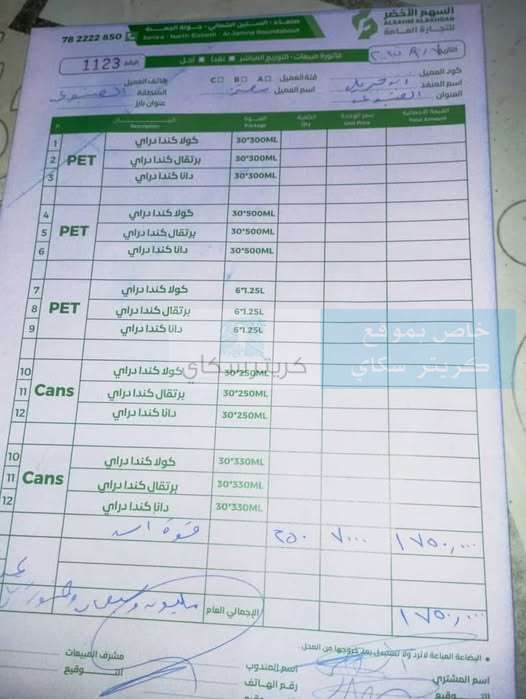 السهم الأخضر
ALSAHM ALAKHDAR
للتجارة العامة
صنعاء - الستين الشمالي - جولة الجمنة
Sana'a - North Sixteen - Ar-Jamna Roundabout
78 2222 850
فاتورة مبيعات - التوزيع المباشر نقداً آجل
الرقم 1123
كود العميل
فئة العميل A B C
هاتف العميل
اسم المنفذ
اسم العميل
المنطقة
العنوان
عنوان بارز
م البيان Description العبوة Package الكمية Qty سعر الوحدة Unit Price القيمة الإجمالية Total Amount
1 PET كولا كندا دراي 30*300ML
2 برتقال كندا دراي 30*300ML
3 دانا كندا دراي 30*300ML
4 PET كولا كندا دراي 30*500ML
5 برتقال كندا دراي 30*500ML
6 دانا كندا دراي 30*500ML
7 PET كولا كندا دراي 6*1.25L
8 برتقال كندا دراي 6*1.25L
9 دانا كندا دراي 6*1.25L
10 Cans كولا كندا دراي 30*250ML
11 برتقال كندا دراي 30*250ML
12 دانا كندا دراي 30*250ML
خاص بموقع
كريتر سكاي
كريتر سكاي
10 Cans كولا كندا دراي 30*330ML
11 برتقال كندا دراي 30*330ML
12 دانا كندا دراي 30*330ML
٢٥٠ ٧٠٠٠ ١٧٥٠,٠٠٠
الإجمالي العام ١٧٥٠,٠٠٠
البضاعة المباعة لا ترد ولا تستبدل بعد خروجها من المحل
اسم المشتري
اسم المندوب
مشرف المبيعات
توقيع
رقم الهاتف
التوقيع